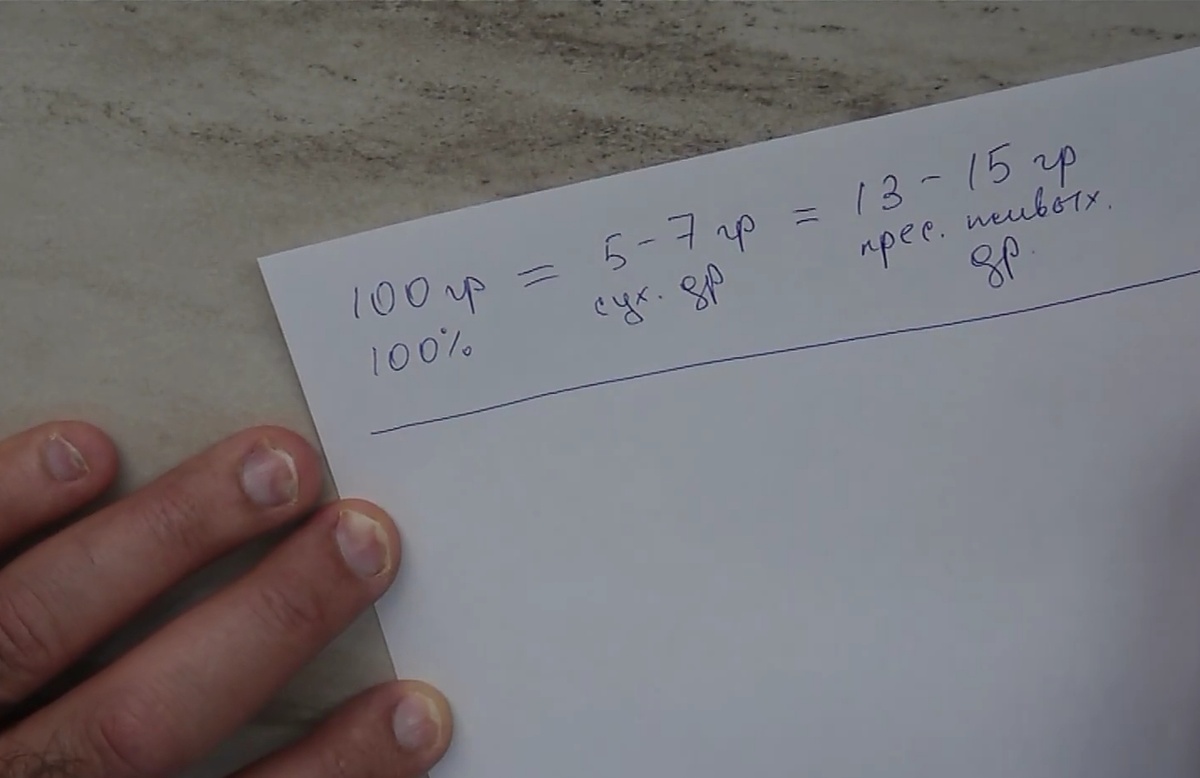 100 гр = 5-7 гр = 13-15 гр
100% сух. др прес. живых.
др.